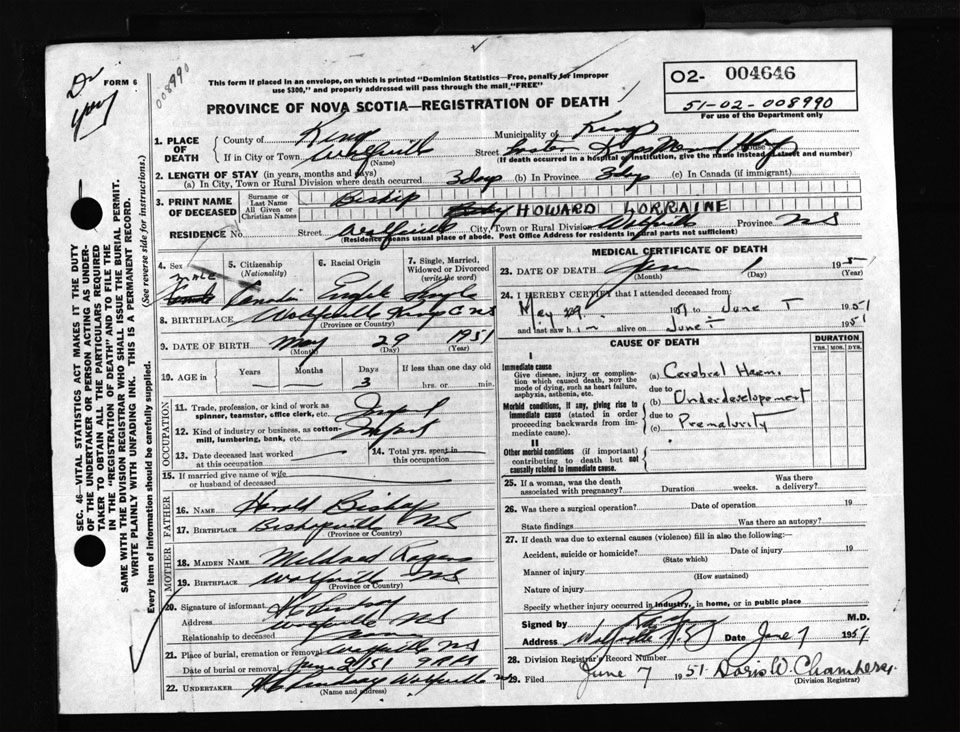 Dr
FORM 6
008990
This form if placed in an envelope, on which is printed "Dominion Statistics—Free, penalty for improper
use $300," and properly addressed will pass through the mail "FREE"
PROVINCE OF NOVA SCOTIA—REGISTRATION OF DEATH
02- 004646
51-02-008990
For use of the Department only
1. PLACE OF DEATH
County of Kings Municipality of Kings
If in City or Town Wolfville Street House
(Name) (If death occurred in a hospital or institution, give the name instead of street and number)
2. LENGTH OF STAY (in years, months and days)
(a) In City, Town or Rural Division where death occurred 3 days (b) In Province 3 days (c) In Canada (if immigrant)
3. PRINT NAME OF DECEASED
Surname or Last Name Bishop
All Given or Christian Names Baby HOWARD LORRAINE
RESIDENCE No. Street Wolfville City, Town or Rural Division Wolfville Province NS
(Residence means usual place of abode. Post Office Address for residents in rural parts not sufficient)
4. Sex male Female
5. Citizenship (Nationality) Canadian
6. Racial Origin English
7. Single, Married, Widowed or Divorced (write the word) Single
8. BIRTHPLACE Wolfville Kings C NS
(Province or Country)
9. DATE OF BIRTH May 29 1951
(Month) (Day) (Year)
10. AGE in Years Months Days 3 If less than one day old hrs. or min.
OCCUPATION
11. Trade, profession or kind of work as spinner, teamster, office clerk, etc. Infant
12. Kind of industry or business, as cotton-mill, lumbering, bank, etc. Infant
13. Date deceased last worked at this occupation
14. Total yrs. spent in this occupation
15. If married give name of wife or husband of deceased
FATHER
16. Name Harold Bishop
17. Birthplace Bishopville NS
(Province or Country)
MOTHER
18. MAIDEN NAME Mildred Rogers
19. BIRTHPLACE Wolfville NS
(Province or Country)
20. Signature of informant
Address Wolfville NS
Relationship to deceased
21. Place of burial, cremation or removal Wolfville NS
Date of burial or removal June 2/51 9 PM
22. UNDERTAKER Wolfville NS
(Name and address)
MEDICAL CERTIFICATE OF DEATH
23. DATE OF DEATH June 1 1951
(Month) (Day) (Year)
24. I HEREBY CERTIFY that I attended deceased from:
May 29 1951 to June 1 1951
and last saw him alive on June 1 1951
CAUSE OF DEATH
DURATION
YRS. MOS. DYS.
I
Immediate cause
Give disease, injury or complication which caused death, NOT the mode of dying, such as heart failure, asphyxia, asthenia, etc.
(a) Cerebral Haem.
due to
Morbid conditions, if any, giving rise to immediate cause (stated in order proceeding backwards from immediate cause).
(b) Underdevelopement
due to
(c) Prematurity
II
Other morbid conditions (if important) contributing to death but not causally related to immediate cause.
25. If a woman, was the death associated with pregnancy? Duration weeks. Was there a delivery?
26. Was there a surgical operation? Date of operation 19
State findings Was there an autopsy?
27. If death was due to external causes (violence) fill in also the following:
Accident, suicide or homicide? Date of injury 19
(State which)
Manner of injury
(How sustained)
Nature of injury
Specify whether injury occurred in industry, in home, or in public place
Signed by M.D.
Address Wolfville N.S. Date June 7 1951
28. Division Registrar's Record Number
29. Filed June 7 1951 Doris W. Chambers
(Division Registrar)
SEC. 46—VITAL STATISTICS ACT MAKES IT THE DUTY
OF THE UNDERTAKER OR PERSON ACTING AS UNDER-
TAKER TO OBTAIN ALL THE PARTICULARS REQUIRED
IN THE "REGISTRATION OF DEATH" AND TO FILE THE
SAME WITH THE DIVISION REGISTRAR WHO SHALL ISSUE THE BURIAL PERMIT.
WRITE PLAINLY WITH UNFADING INK. THIS IS A PERMANENT RECORD.
Every item of information should be carefully supplied.
(See reverse side for instructions.)